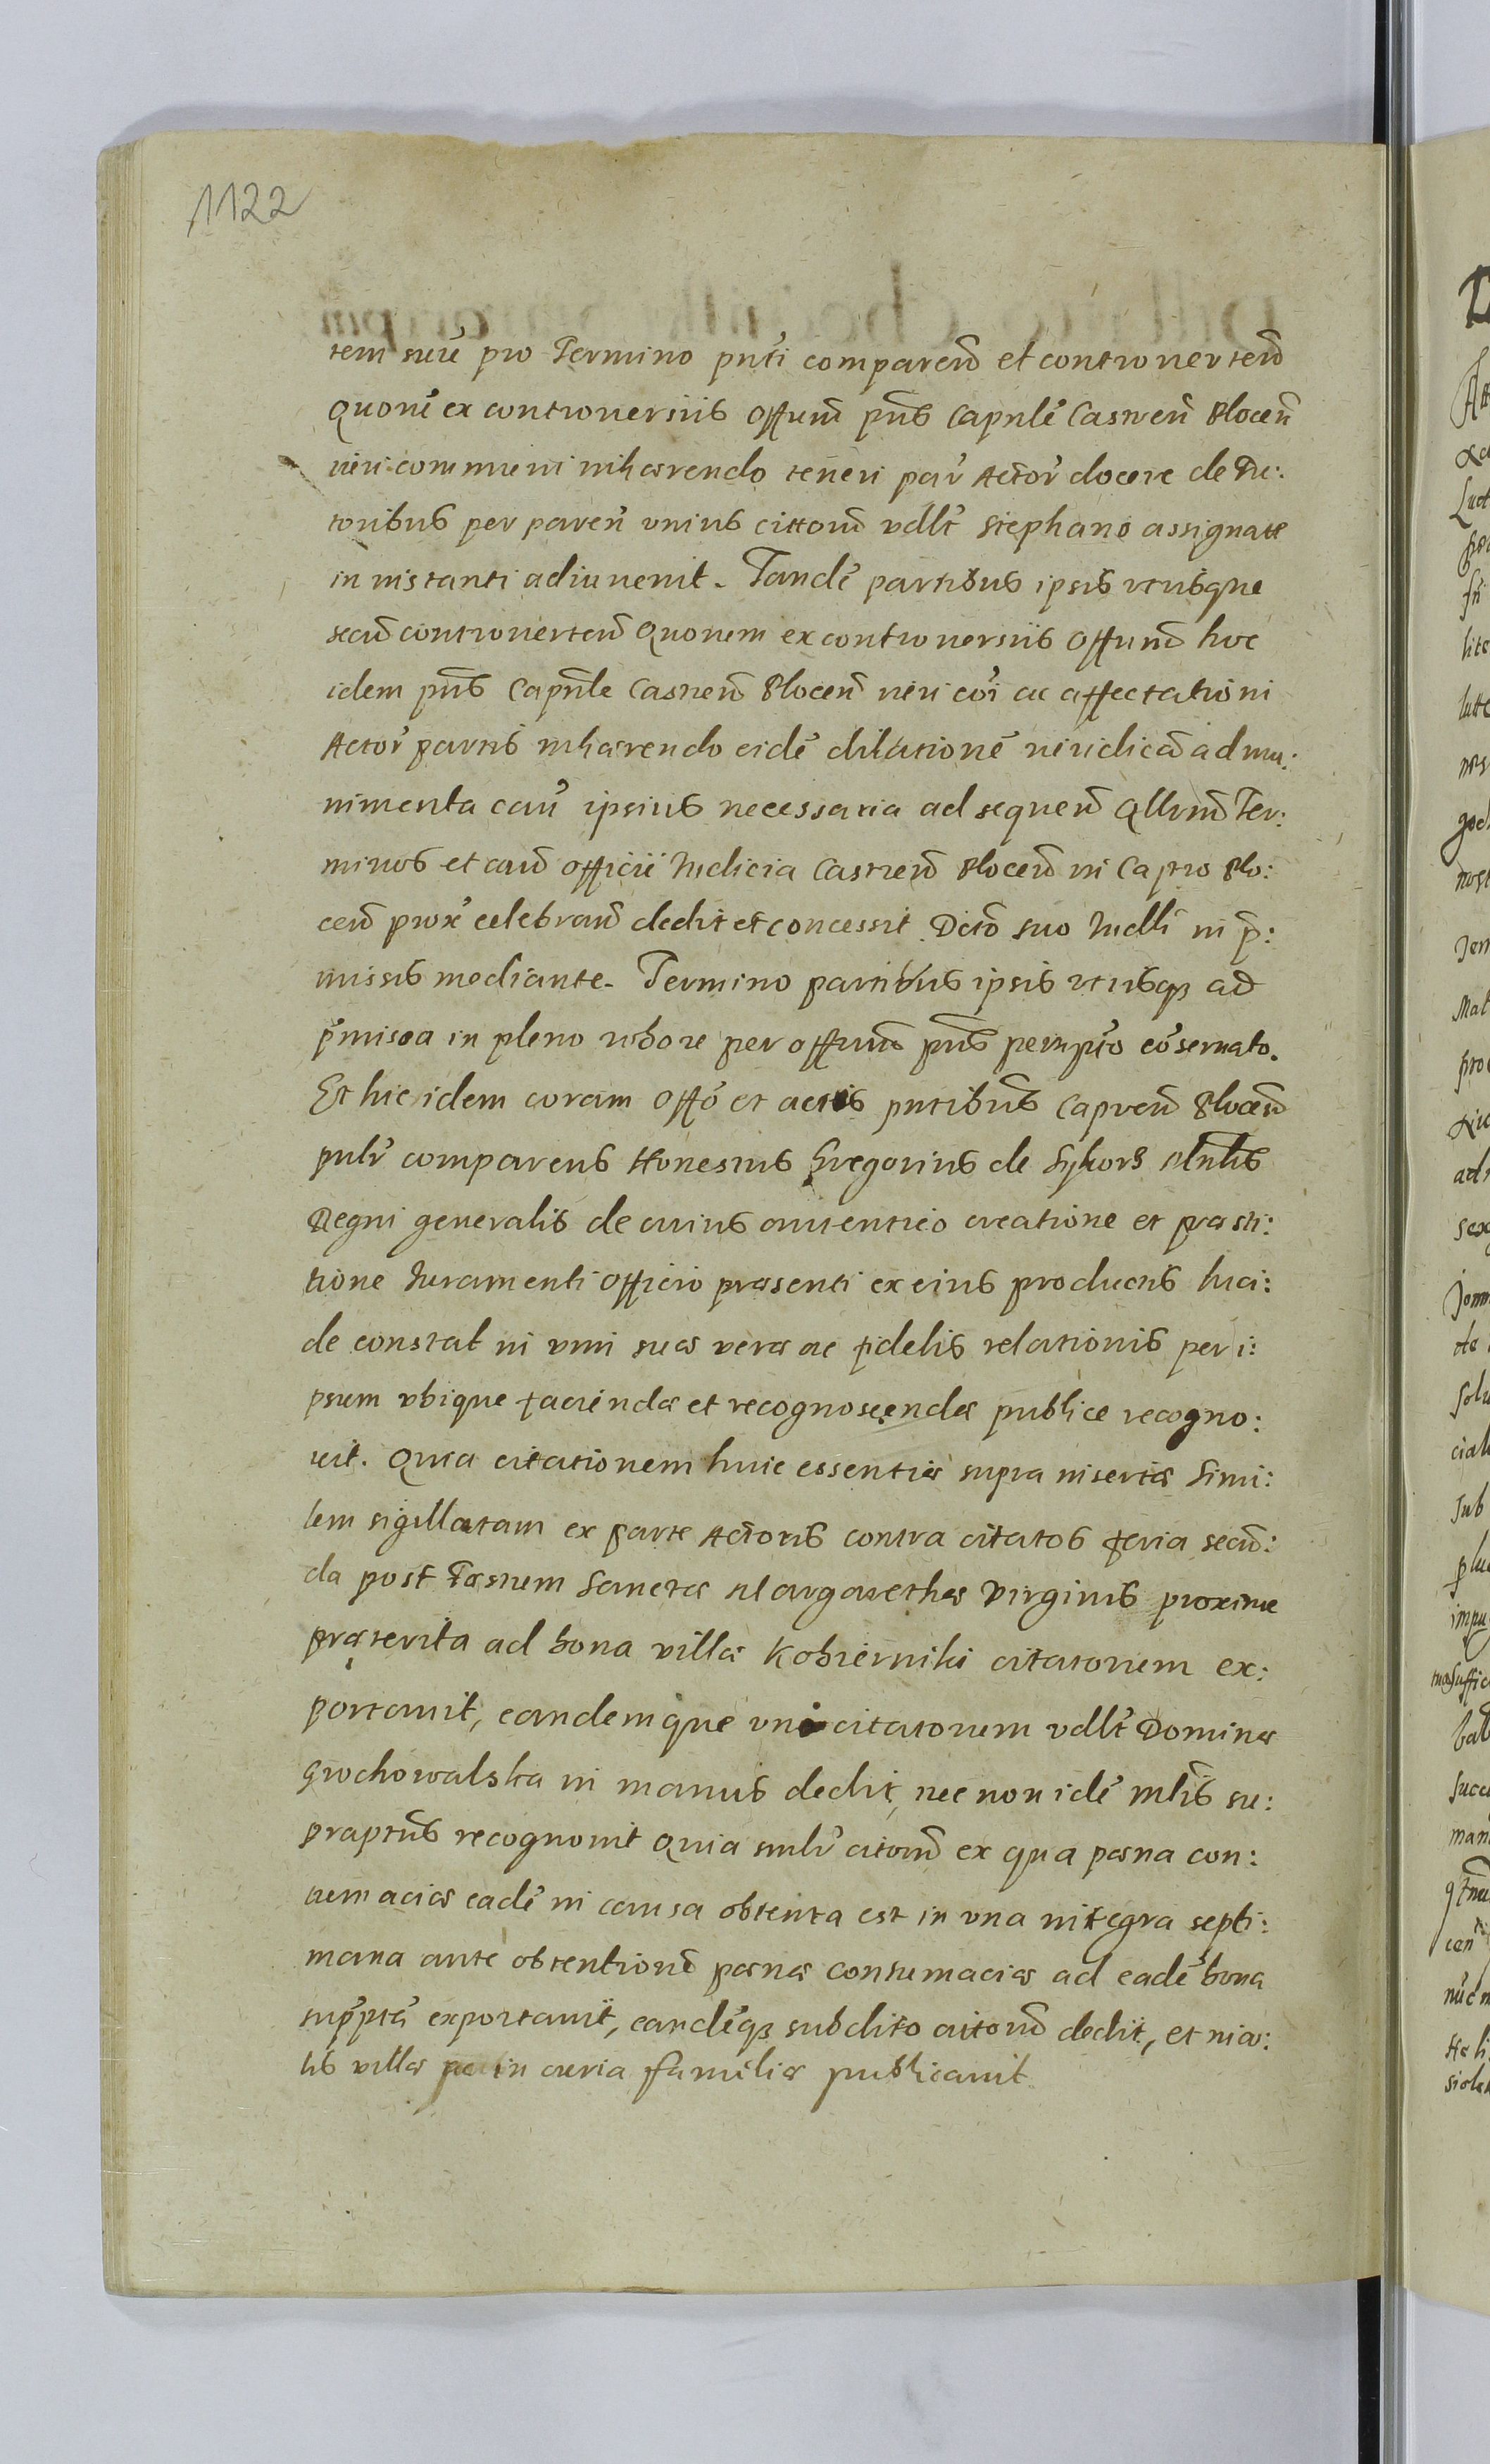 1122
tem suũ pro Termino pñti comparen̄ et controuerten̄
Quorũ ex controuersiis Offium̄ pñs Capnlẽ Castren̄ Plocen̄
iuri communi inhærendo teneri par̃ Actor̃ docere de Tu:
toribus per paren̄ vnius cittorum̄ vdlt̃ Stephano assignatt
in instanti adiuuenit. Tandẽ partibus ipsis vtrisque
secum̄ controuerten̄ Quorum ex controuersiis Offium̄ hoc
idem pñs Capnle Castren̄ Plocen̄ iuri cõi ac affectationi
Actor̃ partis inhærendo eidẽ dilationẽ iuridicam̄ ad mu:
nimenta cau̓ ipsius necessaria ad sequen̄ Qllrum̄ Ter:
minos et caũ officii Iudicia Castren̄ Plocen̄ in Castro Plo:
cen̄ prox̃ celebran̄ dedit et concessit Dcto suo Iudlĩ in p̃:
missis mediante. Termino partibus ipsis vtrisqȝ ad
p̃missa in pleno robore per offium̄ pñs perempt̃o cõseruato.
Et hic idem coram Offõ et actis pñtibus Capren̄ Plocen̄
pnlr̃ comparens Honestus Gregorius de Sykorʒ Mnl̃is
Regni generalis de cuius autentico creatione et præsti:
tione Iuramenti Officio præsenti ex eius productis luci:
de constat in vim suæ veræ ac fidelis relationis per i:
psum vbique faciendæ et recognoscendæ publice recogno:
uit. Quia citationem huic essentiæ supra insertæ Simi:
lem sigillatam ex parte Actoris contra citatos feria secun̄:
da post Festum Sanctæ Margarethæ Virginis proxime
præterita ad bona villæ Kobierniki citatorum ex:
portauit, eandemque vni citatorum vdlt̃ Dominæ
Grochowalska in manus dedit, nec non idẽ Mlis̃ su:
praptus̃ recognouit Quia simlr̃ citom̄ ex qua pœna con:
tumaciæ eadẽ in causa obtenta est in vna integra septi:
mana ante obtentionẽ pœnæ contumaciæ ad eadẽ bona
sup̃pta̓ exportauit, eandẽqȝ subdito citorum̄ dedit, et in a:
lis villæ in curia familiæ publicauit